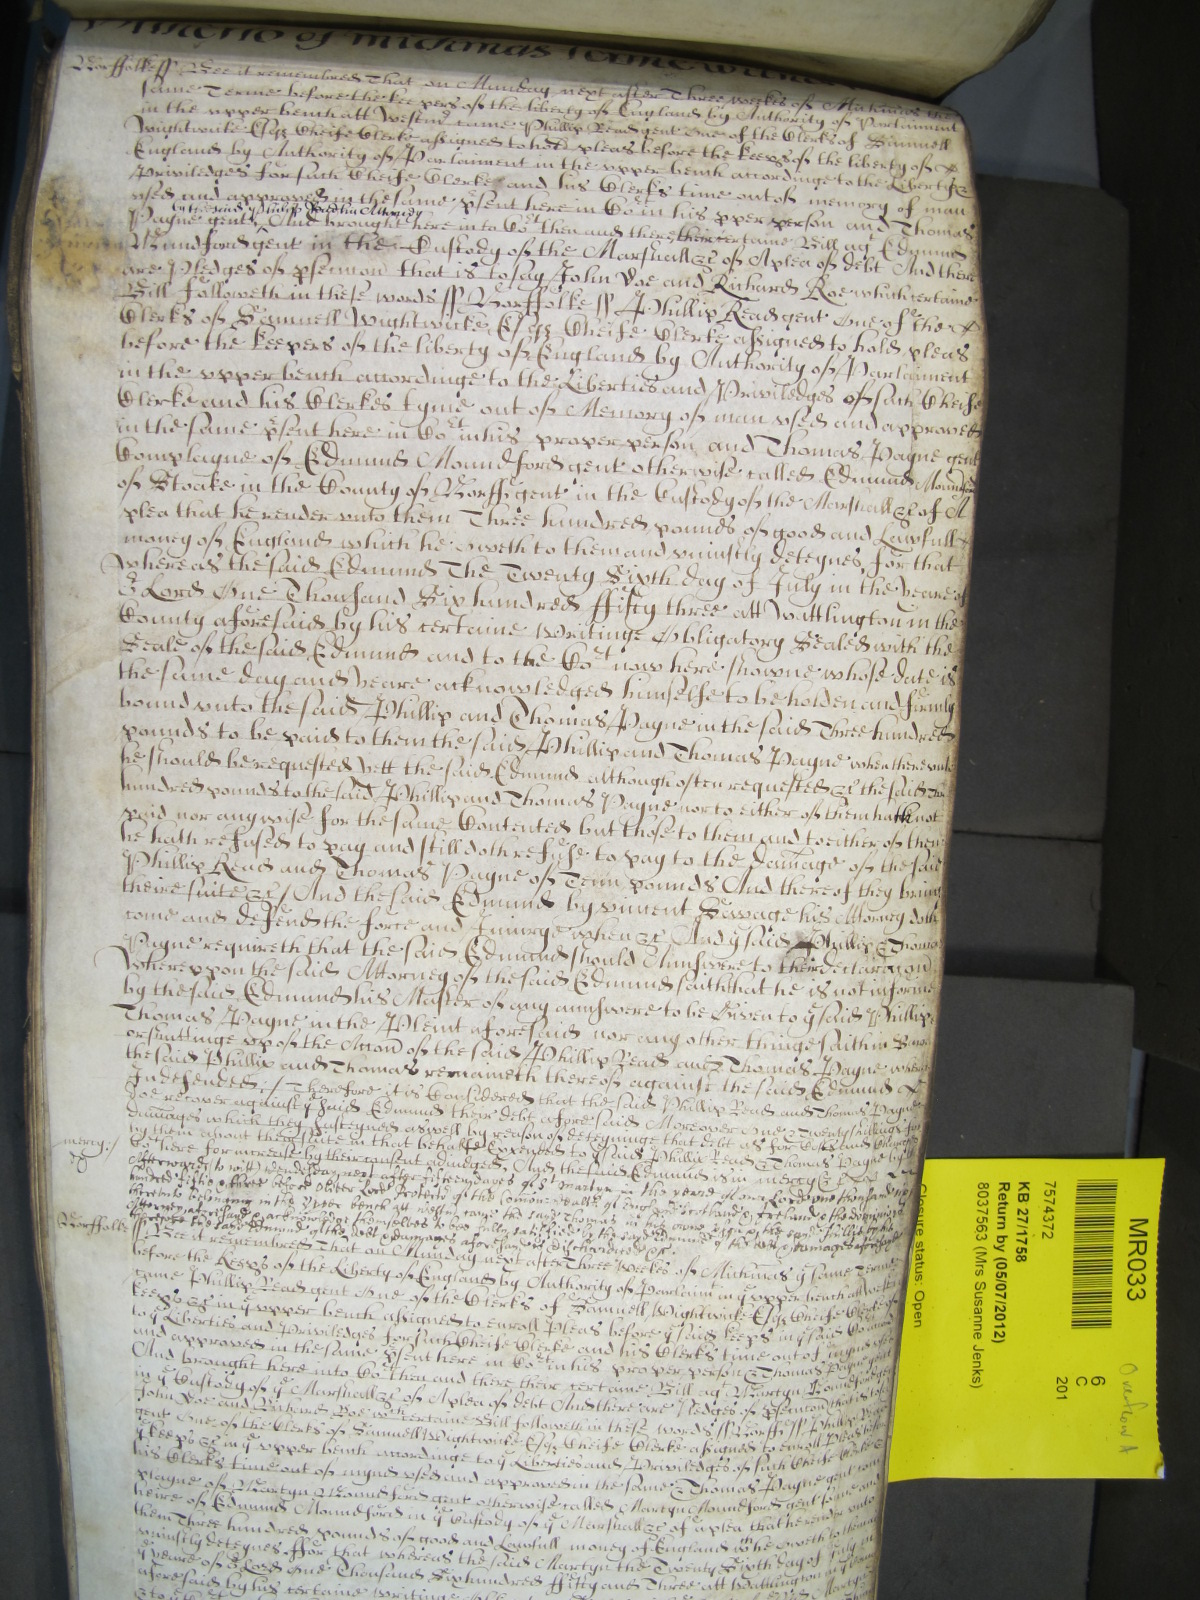 of Michmas Terme
Norffolke ss Bee it remembred That on Munday next after Three weekes of Michmas the
same Terme before the keepers of the liberty of England by Authority of Parlament
in the upper bench att Westm came Phillip Read gent One of the Clerks of Samuell
Wightwicke Esqr Cheife Clerke assigned to hold pleas before the keeps of the liberty of
England by Authority of Parlament in the upper bench accordinge to the Libertyes
Priviledges for such Cheife Clerke and his Clerks time out of memory of man
used and approved in the same psent here in Cot in his pper person and Thomas
Payne gent by Attorney And brought here into Cot then and there their certaine Bill agt Edmund
Mundford gent in the Custody of the Marshall &c of A plea of debt And there
are Pledges of psecucon that is to say John Doe and Richard Roe which certaine
Bill followeth in these words ss Norffolke ss Phillip Read gent One of the
Clerks of Samuell Wightwicke Esqr Cheife Clerke assigned to hold pleas
before the keepers of the liberty of England by Authority of Parlament
in the upper bench accordinge to the Liberties and Priviledges of such Cheife
Clerke and his Clerkes tyme out of Memory of man used and approved
in the same psent here in Cot in his proper person and Thomas Payne gent
Complayne of Edmund Moundford gent otherwise called Edmund Moundford
of Stoake in the County of Norff gent in the Custody of the Marshall &c of A
plea that he render unto them Three hundred pounds of good and Lawfull
money of England which he oweth to them and uniustly deteynes for that
whereas the said Edmund The Twenty Sixth day of July in the yeare of
or Lord One Thousand Six hundred ffifty three att Wattlington in the
County aforesaid by his certaine Writinge Obligatory Sealed with the
Seale of the said Edmund and to the Cot now here showne whose date is
the same day and yeare acknowledged himselfe to be holden and firmly
bound unto the said Phillip and Thomas Payne in the said Three hundred
pounds to be paid to them the said Phillip and Thomas Payne when thereunto
he should be requested yett the said Edmund although often requested &c the said Three
hundred pounds to the said Phillip and Thomas Payne nor to either of them hath not
paid nor anywise for the same Contented but those to them and to either of them
he hath refused to pay and still doth refuse to pay to the damage of the said
Phillip Read and Thomas Payne of Tenn pounds And thereof they bring
theire suite &c / And the said Edmund by vincent Savage his Attorney doth
come and defend the force and Iniurye when &c And ye said Phillip & Thomas
Payne requireth that the said Edmund should Aunswere to their declaracon
Whereupon the said Attorney of the said Edmund saith that he is not informed
by the said Edmund his Master of any aunswere to be Given to ye said Phillip &
Thomas Payne in the Pleint aforesaid nor any other thinge saith in Barr
or of the Accon of the said Phillip Read and Thomas Payne whereby
the said Phillip and Thomas remaineth thereof against the said Edmund
Indefended / Therefore it is Considered that the said Phillip Read and Thomas Payne
doe recover against ye said Edmund their debt aforesaid Moreover One & Twenty shillings for
damages which they susteyned aswell by reason of deteyninge that debt as for Costs and Charges
by them about their suite in that behalfe Expended to ye said Phillip Read & Thomas Payne by ye
Cot here for increase by their consent adiudged. And the said Edmund is in mercy &c
mercy /
Afterwards to witt wednesday next after fifteene dayes of St Martyn in the yeare of our Lord one thousand six
hundred fiftie & three before Oliver Lord Protector of the Common wealth of England Scotland & Ireland & the dominions
thereunto belonging in the Upper bench att westm came the said Thomas in his owne person & the said Phillip by his
Attorney aforesaid & acknowledged themselves to bee fully satisfied by the said Edmund of the debt & damages aforesaid
Therefore the said Edmund of the debt & damages aforesaid is discharged &c
Norffolke ss Bee it remembred That on Munday next after Three weekes of Michmas ye same Terme
before the Keeps of the Liberty of England by Authority of Parlamt in ye upper bench att westm
came Phillip Read gent One of the Clerks of Samuell Wightwicke Esqr Cheife Clerke of
keeps &c in ye upper bench assigned to enroll Pleas before ye said keeps in ye said Co
to ye Liberties and Priviledges for such Cheife Clerke and his Clerks time out of mynd used
and approved in the same psent here in Cot in his proper person & Thomas Payne gent
And brought here into Cot then and there their certaine Bill agt Martyn Moundford gent
in ye Custody of ye Marshall &c of A plea of debt And there are Pledges of psecucon that is to say
John Doe and Richard Roe wch certaine Bill followeth in these words ss Norff ss Phillip Read
gent One of the Clerks of Samuell Wightwicke Esqr Cheife Clerke assigned to enroll Pleas before
ye keeps &c in ye upper bench accordinge to ye Liberties and Priviledges of such Cheife Clerke &
his Clerks time out of mynd used and approved in the same & Thomas Payne gent com
playne of Martyn Moundford gent otherwise called Martyn Moundford gent sonne and
heire of Edmund Moundford in ye Custody of ye Marshall &c of a plea that he render unto
them Three hundred pounds of good and Lawfull money of England wch he oweth to them and
uniustly deteynes ffor that whereas the said Martyn the Twenty Sixth day of July in
ye yeare of or Lord One Thousand Sixhundred ffifty and Three att Wattlington in ye County
aforesaid by his certaine Writinge
MR033
7574372
KB 27/1758
Return by (05/07/2012)
8037563 (Mrs Susanne Jenks)
Closure status: Open
6
C
201
Overflow A